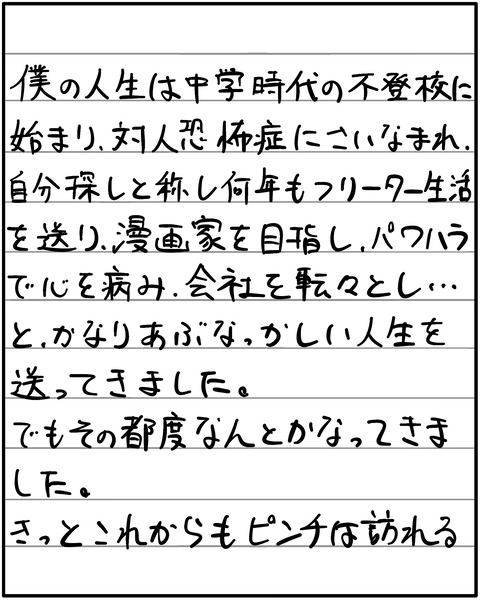 僕の人生は中学時代の不登校に
始まり、対人恐怖症にさいなまれ、
自分探しと称し何年もフリーター生活
を送り、漫画家を目指し、パワハラ
で心を病み、会社を転々とし…
と、かなりあぶなっかしい人生を
送ってきました。
でもその都度なんとかなってきま
した。
きっとこれからもピンチは訪れる